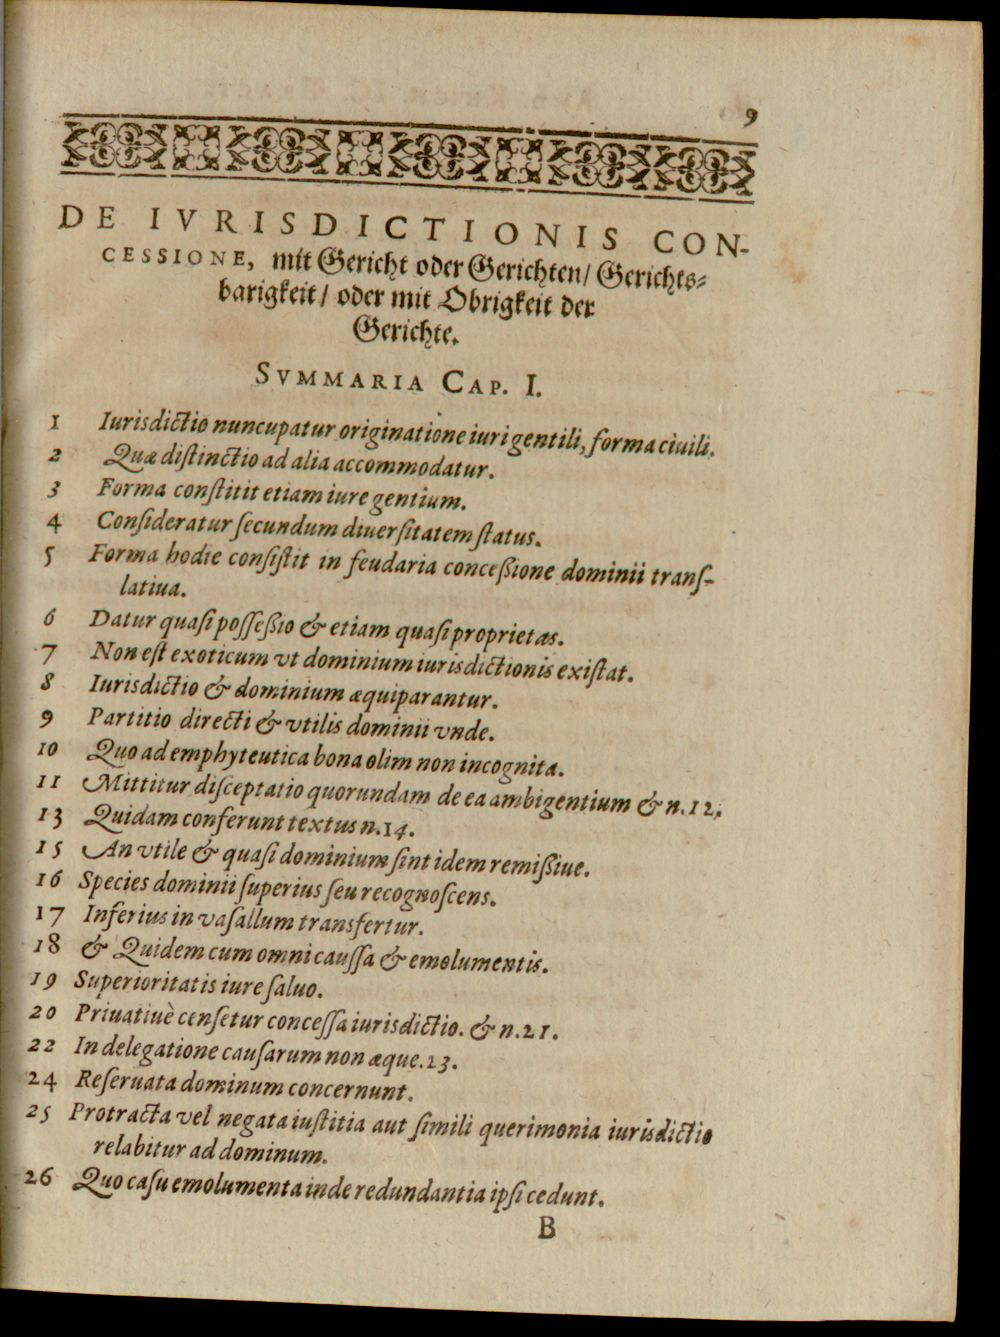 9
DE IVRISDICTIONIS CON-
CESSIONE, mit Gericht oder Gerichten/ Gerichts-
barigkeit/ oder mit Obrigkeit der
Gerichte.
SVMMARIA CAP. I.
1 Iurisdictio nuncupatur originatione iuri gentili, forma ciuili.
2 Quæ distinctio ad alia accommodatur.
3 Forma constitit etiam iure gentium.
4 Consideratur secundum diuersitatem status.
5 Forma hodie consistit in feudaria conceßione dominii trans-
latiua.
6 Datur quasi posseßio & etiam quasi proprietas.
7 Non est exoticum vt dominium iurisdictionis existat.
8 Iurisdictio & dominium æquiparantur.
9 Partitio directi & vtilis dominii vnde.
10 Quo ad emphyteutica bona olim non incognita.
11 Mittitur disceptatio quorundam de ea ambigentium & n.12.
13 Quidam conferunt textus n.14.
15 An vtile & quasi dominium sint idem remißiue.
16 Species dominii superius seu recognoscens.
17 Inferius in vasallum transfertur.
18 & Quidem cum omni caussa & emolumentis.
19 Superioritatis iure saluo.
20 Priuatiuè censetur concessa iurisdictio. & n.21.
22 In delegatione causarum non æque.23.
24 Reseruata dominum concernunt.
25 Protracta vel negata iustitia aut simili querimonia iurisdictio
relabitur ad dominum.
26 Quo casu emolumenta inde redundantia ipsi cedunt.
B